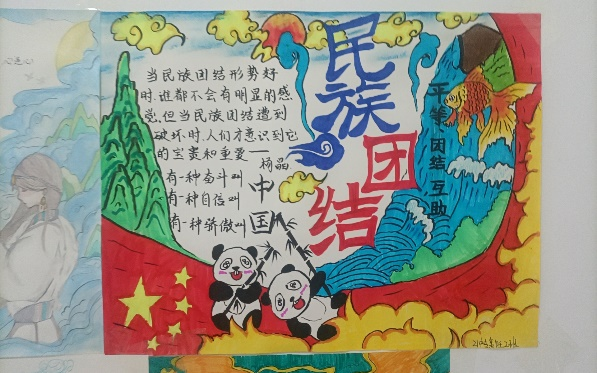 民族
团结
当民族团结形势好
时,谁都不会有明显的感
觉,但当民族团结遭到
破坏时,人们才意识到它
的宝贵和重要——杨晶
有一种奋斗叫
有一种自信叫
有一种骄傲叫
中国
平等、团结互助